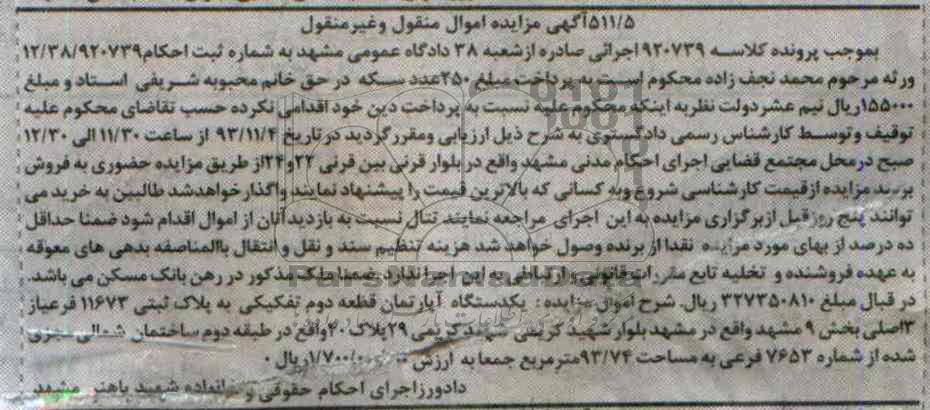 ۵۱۱/۵آگهی مزایده اموال منقول وغیرمنقول
بموجب پرونده کلاسه ۹۲۰۷۳۹ اجرائی صادره ازشعبه ۳۸ دادگاه عمومی مشهد به شماره ثبت احکام۱۲/۳۸/۹۲۰۷۳۹
ورثه مرحوم محمد نجف زاده محکوم است به پرداخت مبلغ ۲۵۰عدد سکه در حق خانم محبوبه شریفی استاد و مبلغ
۱۵۵۰۰۰ریال نیم عشردولت نظربه اینکه محکوم علیه نسبت به پرداخت دین خود اقدامی نکرده حسب تقاضای محکوم علیه
توقیف وتوسط کارشناس رسمی دادگستری به شرح ذیل ارزیابی ومقررگردید درتاریخ ۹۳/۱۱/۴ از ساعت ۱۱/۳۰ الی ۱۲/۳۰
صبح درمحل مجتمع قضایی اجرای احکام مدنی مشهد واقع در بلوار قرنی بین قرنی ۲۲و۲۴از طریق مزایده حضوری به فروش
برسد مزایده ازقیمت کارشناسی شروع وبه کسانی که بالاترین قیمت را پیشنهاد نمایند واگذار خواهدشد طالبین به خرید می
توانند پنج روزقبل ازبرگزاری مزایده به این اجرای مراجعه نمایند تنال نسبت به بازدید آنان از اموال اقدام شود ضمنا حداقل
ده درصد از بهای مورد مزایده نقدا از برنده وصول خواهد شد هزینه تنظیم سند و نقل و انتقال باالمناصفه بدهی های معوقه
به عهده فروشنده و تخلیه تابع مقررات قانونی و ارتباطی به این اجرا ندارد ضمنا ملک مذکور در رهن بانک مسکن می باشد.
در قبال مبلغ ۳۲۷۳۵۰۸۱۰ ریال. شرح اموال مزایده : یکدستگاه آپارتمان قطعه دوم تفکیکی به پلاک ثبتی ۱۱۶۷۳ فرعیاز
۳اصلی بخش ۹ مشهد واقع در مشهد بلوار شهید کریمی شهید کریمی ۲۹پلاک۴۰واقع در طبقه دوم ساختمان شمالی مجزی
شده از شماره ۷۶۵۳ فرعی به مساحت ۹۳/۷۴مترمربع جمعا به ارزش ریال
دادورز اجرای احکام حقوقی و خانواده شهید باهنر مشهد
ParsNamadData